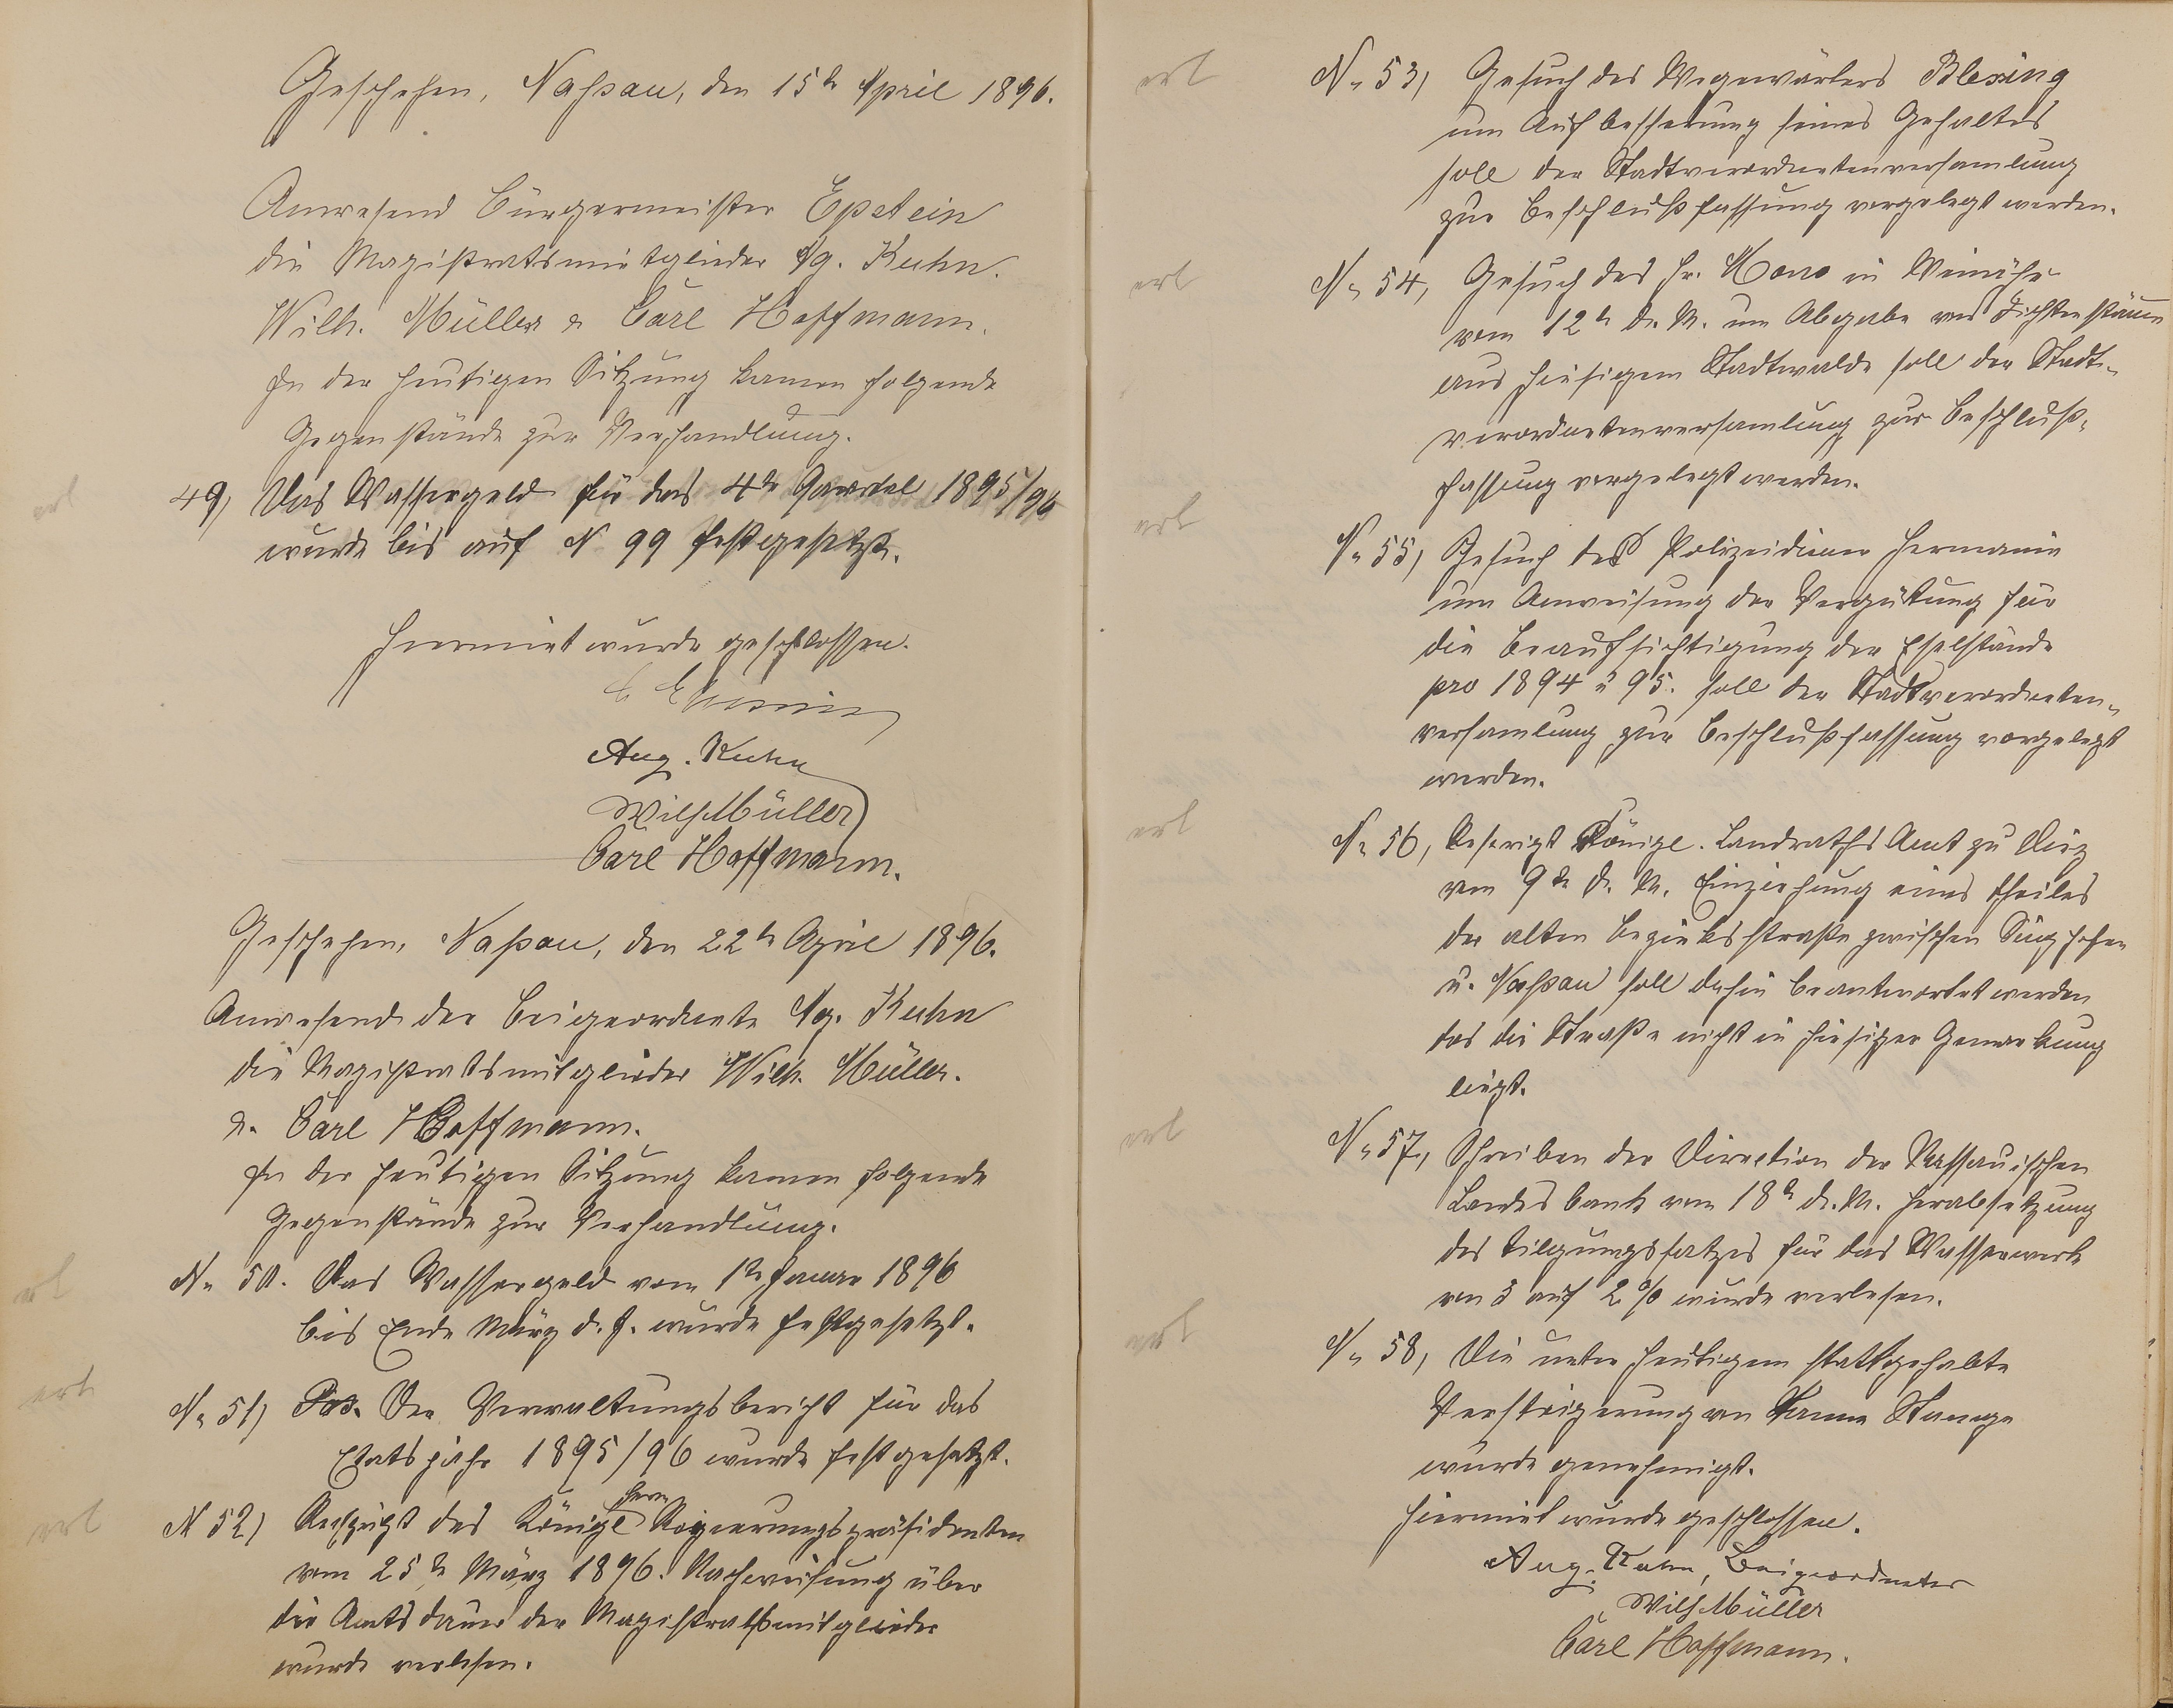 Geschehen, Naßau, den 15te April 1896.
Anwesend Bürgermeister Epstein
die Magistratsmitglieder Ag. Kuhn.
Wilh. Müller & Carl Hoffmann.
In der heutigen Sitzung kamen folgende
Gegenstände zur Verhandlung.
erl
49) Das Wassergeld für das 4te Quartal 1895/96
wurde bis auf N 99 festgesetzt.
Hiermit wurde geschlossen.
Aug. Kuhn
Wilh Müller
Carl Hoffmann.
Geschehen, Naßau, den 22te April 1896.
Anwesend der Beigeordnete Ag. Kuhn
die Magistratsmitglieder Wilh. Müller.
& Carl Hoffmann.
In der heutigen Sitzung kamen folgende
Gegenstände zur Verhandlung.
erl
No 50. Das Wassergeld vom 1te Januar 1896
bis Ende März d. J. wurde festgesetzt.
erl
No 51) Der Verwaltungsbericht für das
Etatsjahr 1895/96 wurde festgesetzt.
erl
N 52) Rescript des Königl Herrn Regierungspräsidenten
vom 25te März 1896. Nachweisung über
die Amtsdauer der Magistratsmitglieder
wurde verlesen.
erl
No 53) Gesuch des Wegewärters Blesing
um Aufbesserung seines Gehaltes
soll der Stadtverordnetenversamlung
zur Beschlußfassung vorgelegt werden.
erl
No 54, Gesuch des Hr. in Weinähr
vom 12te d. M. um Abgabe von Fichtenstämme
aus hiesigem Stadtwalde soll der Stadt-
verordnetenversamlung zur Beschluß-
fassung vorgelegt werden.
erl
No 55) Gesuch des Polizeidiener Hermanie
um Anweisung der Vergütung für
die Beaufsichtigung der Eselstände
pro 1894 u 95. soll der Stadtverordneten-
versamlung zur Beschlußfassung vorgelegt
werden.
erl
No 56, Rescript Königl. Landraths Amt zu Diez
vom 9te d. M. Einziehung eines theiles
der alten Bezirksstraße zwischen Singhofen
u. Naßau soll dahin beantwortet werden
das die Straße nicht in hiesiger Gemarkung
liegt.
erl
No 57, Schreiben der Direction der Nassauischen
Landesbank vom 18te d. M. Herabsetzung
des Tilgungssatzes für das Wasserwerk
von 3 auf 2 % wurde verlesen.
erl
No 58, Die unter heutigem stattgehabte
Versteigerung von Tanne Stange
wurde genehmigt.
Hiermit wurde geschlossen.
Aug. Kuhn, Beigeordneter
Wilh Müller
Carl Hoffmann.